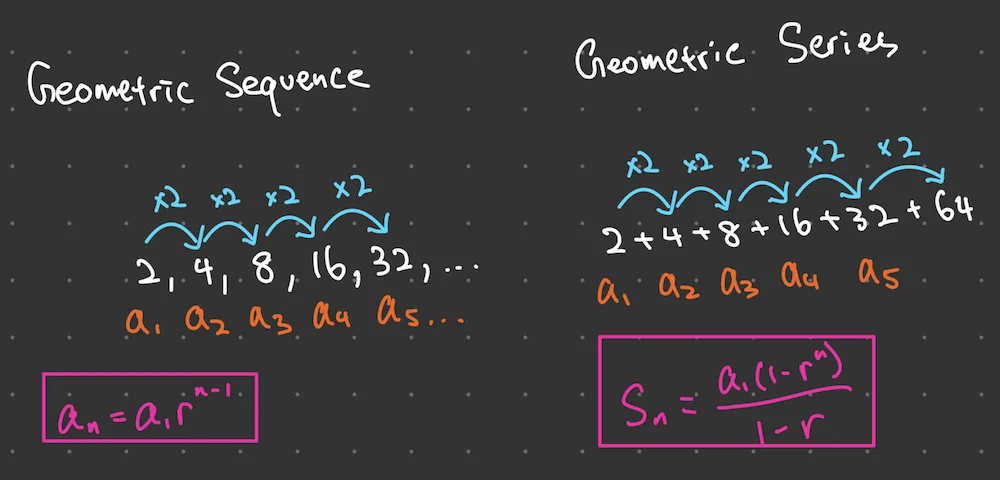 Geometric Sequence
×2 ×2 ×2 ×2
2, 4, 8, 16, 32, ...
a₁ a₂ a₃ a₄ a₅...
aₙ = a₁rⁿ⁻¹
Geometric Series
×2 ×2 ×2 ×2 ×2
2 + 4 + 8 + 16 + 32 + 64
a₁ a₂ a₃ a₄ a₅
Sₙ = a₁(1-rⁿ) / 1-r